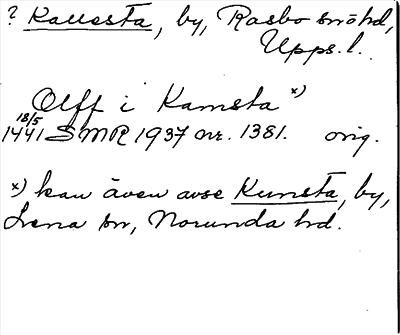 ? Kallesta, by, Rasbo sn o hd,
Upps. l.
Olff i Kamsta x)
18/5
1441 SMR 1937 nr. 1381. orig.
x) kan även avse Kumsta, by,
Lena sn, Norunda hd.